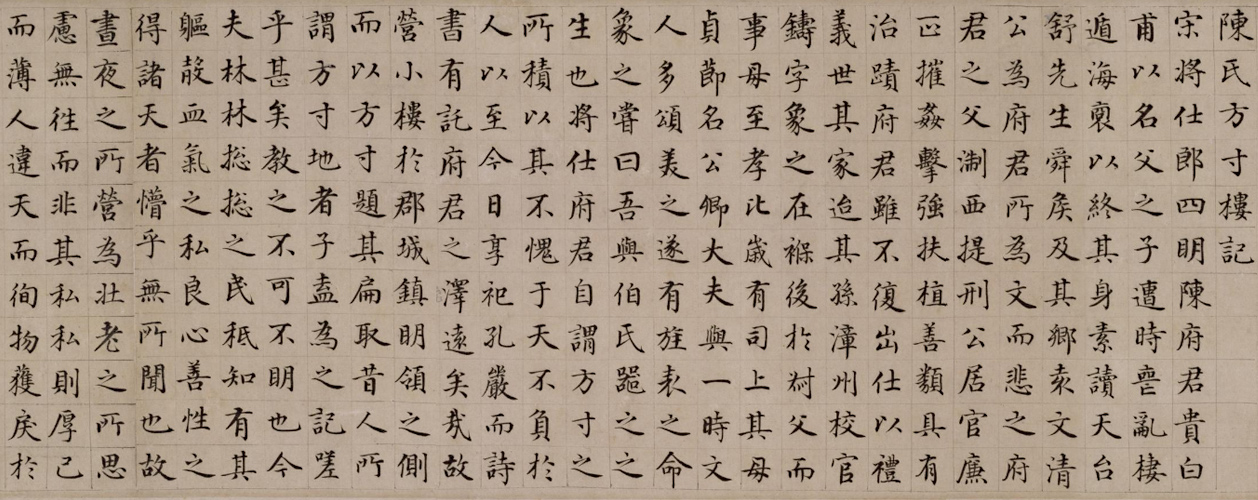 陳氏方寸樓記
宋將仕郎四明陳府君貴白
甫以名父之子遭時喪亂棲
遁海裔以終其身素讀天台
舒先生舜矦及其鄉袁文清
公為府君所為文而悲之府
君之父淛西提刑公居官廉
正摧姦擊強扶植善類具有
治蹟府君雖不復出仕以禮
義世其家迨其孫漳州校官
鑄字象之在褓後於叔父而
事母至孝比歲有司上其母
貞節名公卿大夫與一時文
人多頌美之遂有旌表之命
象之嘗曰吾與伯氏跽之之
生也將仕府君自謂方寸之
所積以其不愧于天不負於
人以至今日享祀孔嚴而詩
書有託府君之澤遠矣哉故
營小樓於郡城鎮明領之側
而以方寸題其扁取昔人所
謂方寸地者子盍為之記嗟
乎甚矣教之不可不明也今
夫林林揔揔之民秪知有其
軀殼血氣之私良心善性之
得諸天者懵乎無所聞也故
晝夜之所營為壯老之所思
慮無徃而非其私私則厚己
而薄人違天而徇物獲戾於